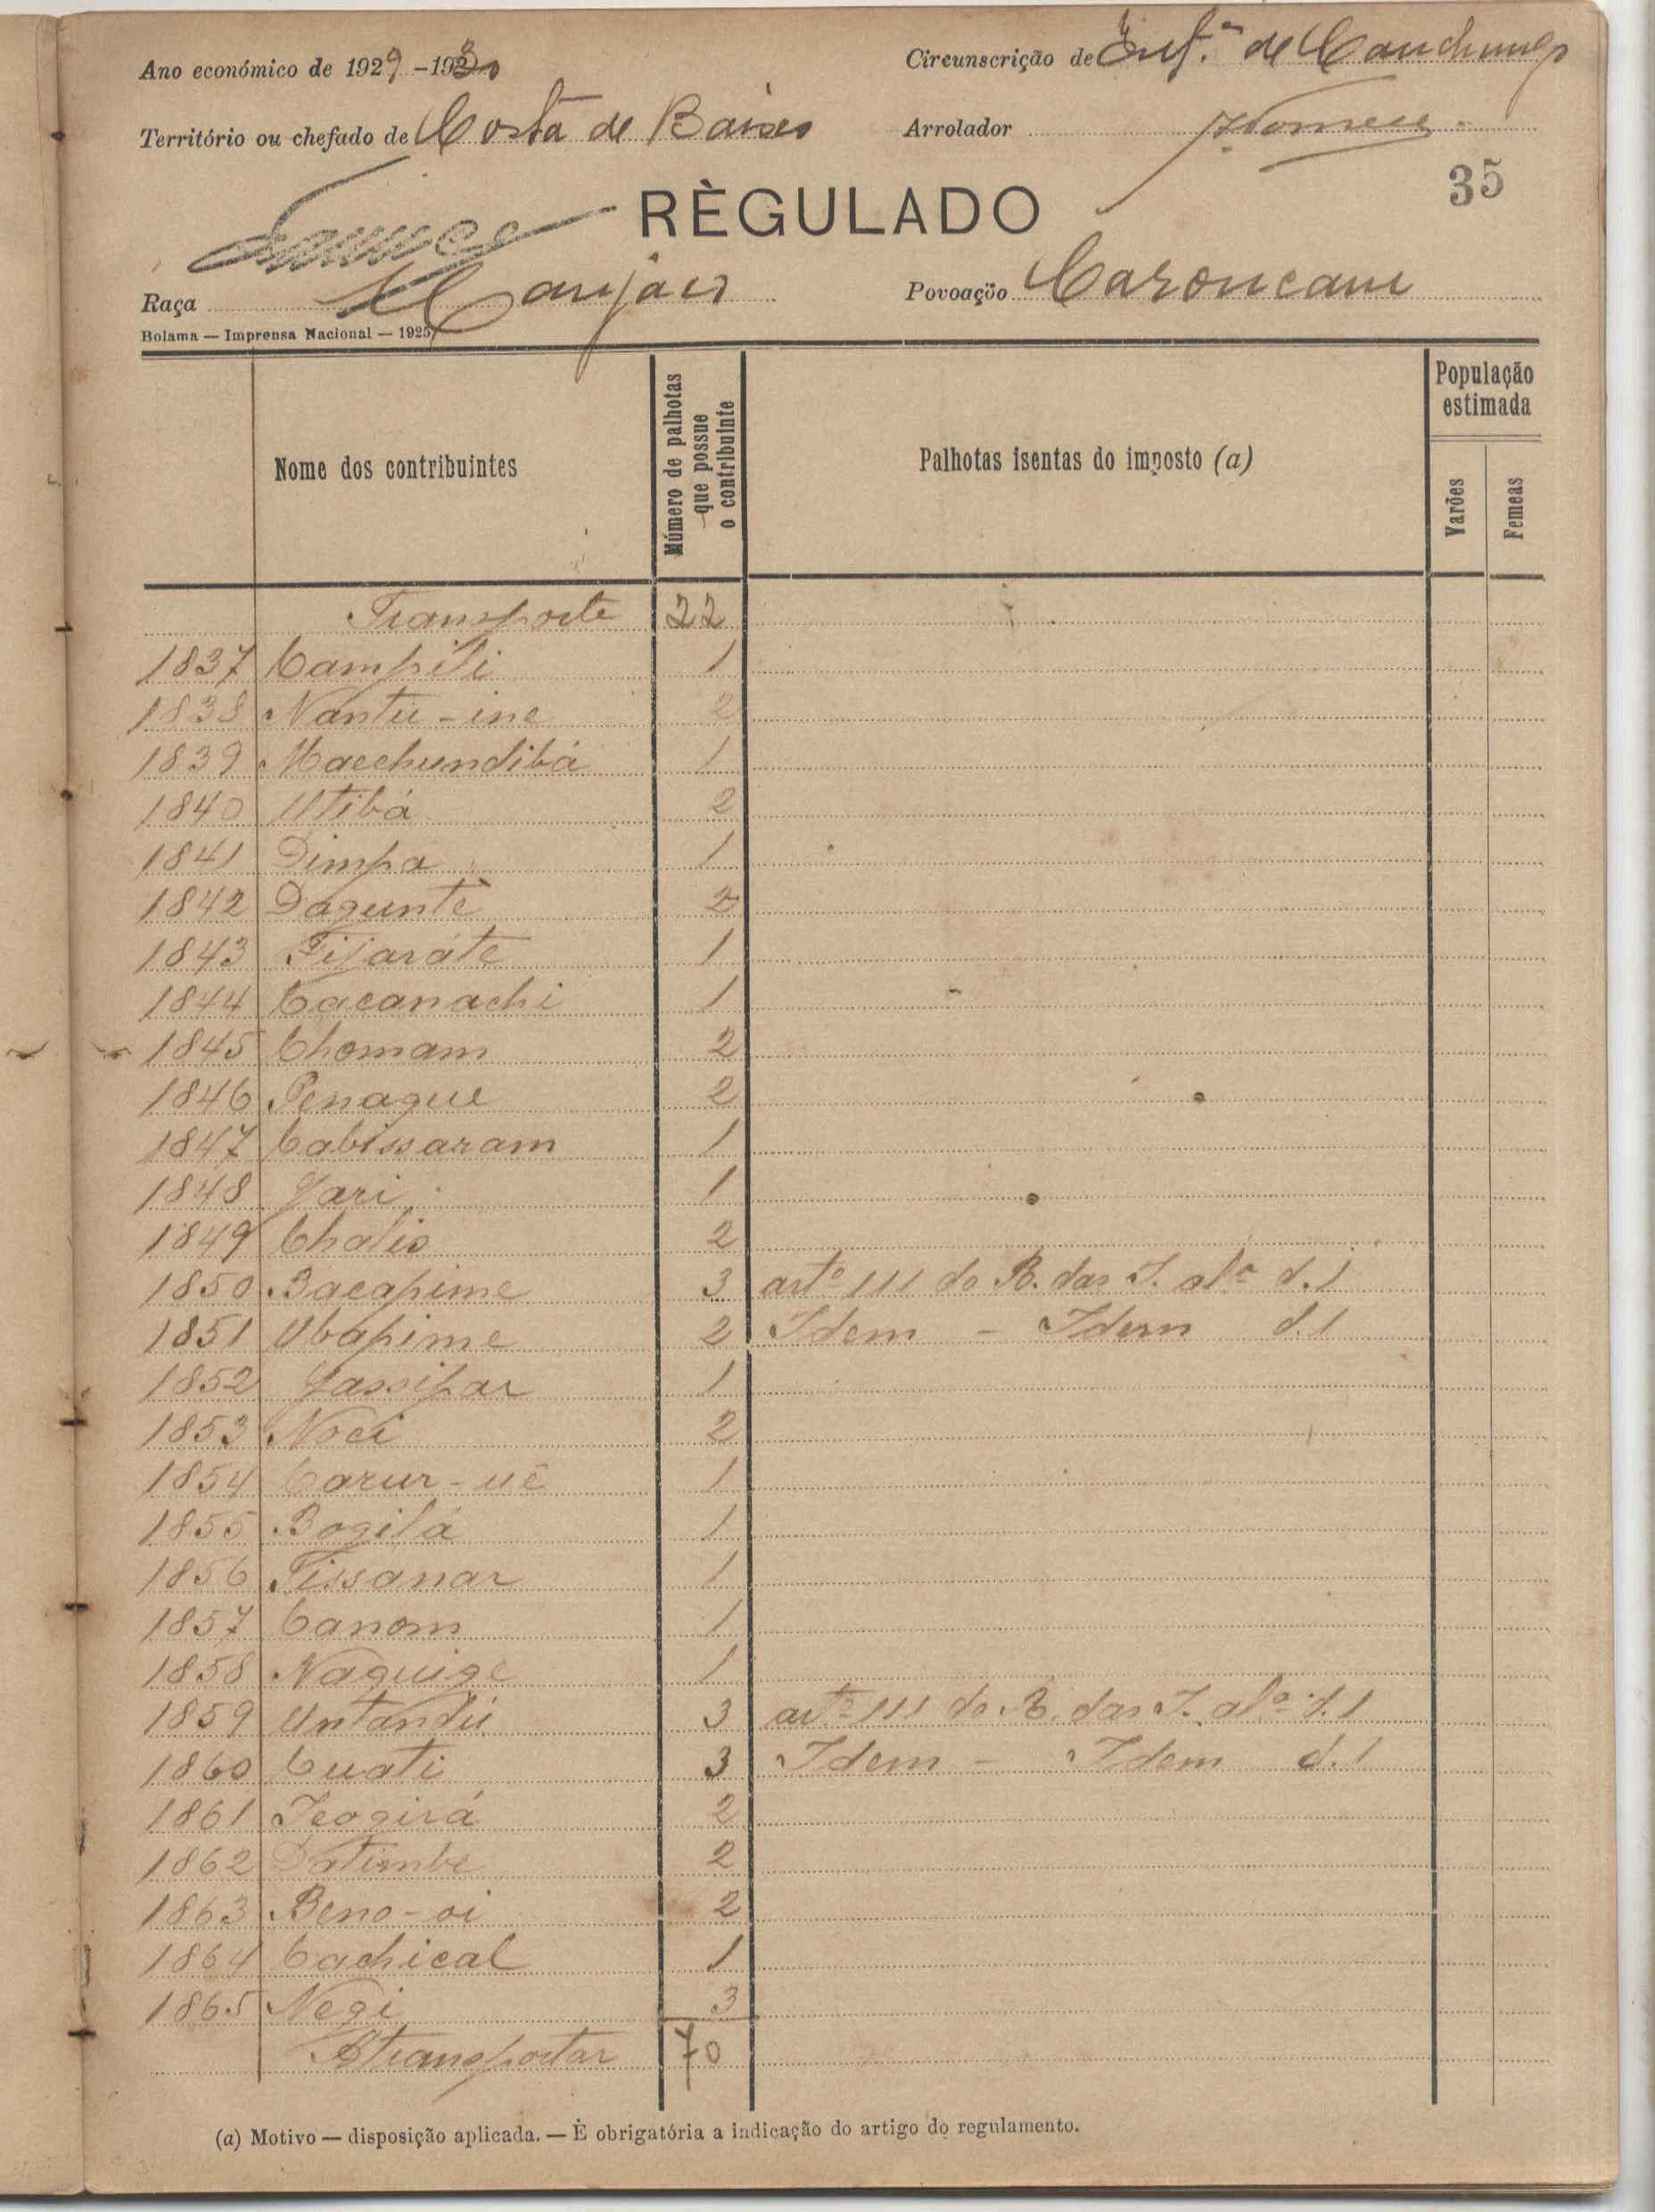 Ano económico de 1929-1930
Circunscrição de Int.ª de Canchungo
Território ou chefado de Costa de Baixo
Arrolador
35
RÈGULADO
Raça Manjaco
Povoação Caroncam
Bolama — Imprensa Nacional — 1925
Nome dos contribuintes
Número de palhotas que possue o contribuinte
Palhotas isentas do imposto (a)
População estimada
Varões
Femeas
Transporte 22
1837 Campili 1
1838 Nantu-ine 2
1839 Macchundibá 1
1840 Utibá 2
1841 Dimpa 1
1842 Dagunte 2
1843 Fijaráte 1
1844 Cacanachi 1
1845 Chomam 2
1846 Penague 2
1847 Cabissaram 1
1848 Jari 1
1849 Chalis 2
1850 Bacapime 3 artº 111 do R. das I. alª d.1
1851 Ubapime 2 Idem - Idem d.1
1852 Jassipar 1
1853 Noci 2
1854 Carur-uê 1
1855 Bogilá 1
1856 Tissanar 1
1857 Canom 1
1858 Naquige 1
1859 Untandú 3 artº 111 do R. das I. alª d.1
1860 Cuati 3 Idem - Idem d.1
1861 Jeogirá 2
1862 Datimbe 2
1863 Beno-oi 2
1864 Cachical 1
1865 Negi 3
A transportar 70
(a) Motivo — disposição aplicada. — È obrigatória a indicação do artigo do regulamento.